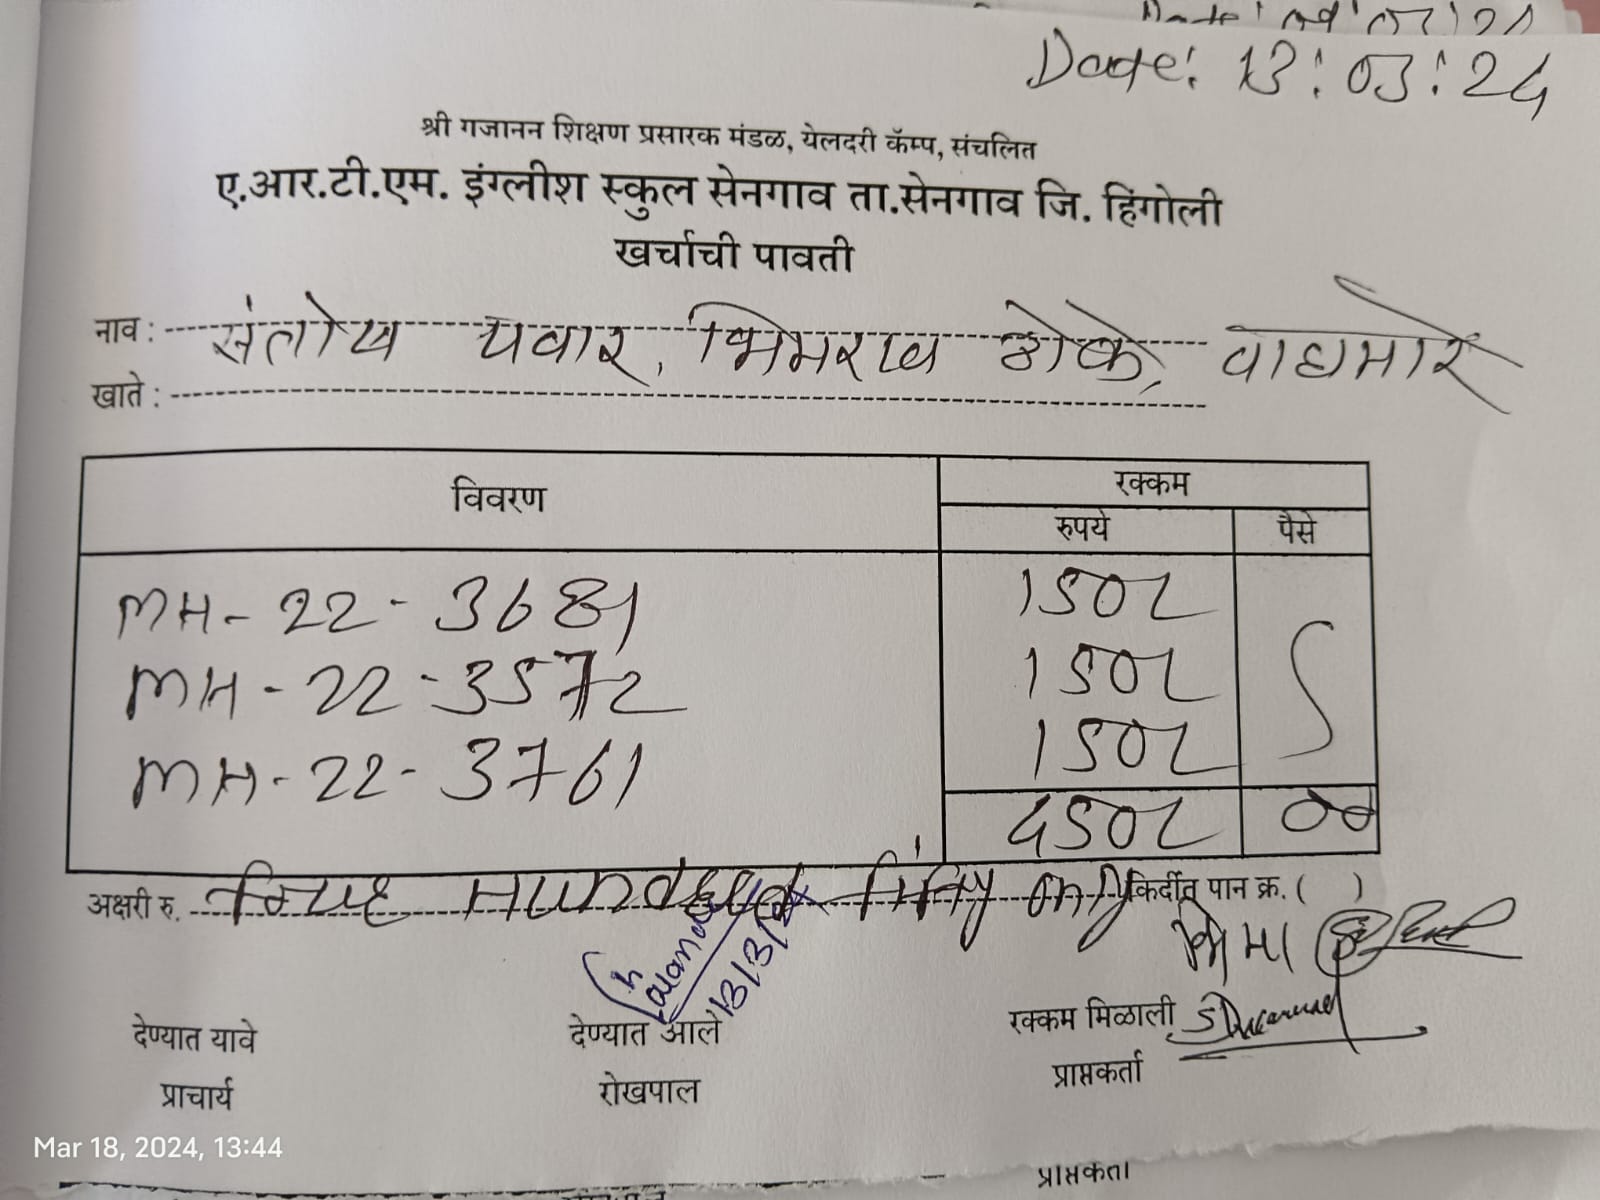 Date: 13:03:24
श्री गजानन शिक्षण प्रसारक मंडळ, येलदरी कॅम्प, संचलित
ए.आर.टी.एम. इंग्लीश स्कुल सेनगाव ता.सेनगाव जि. हिंगोली
खर्चाची पावती
नाव : संतोष पवार, भिमराव शेळके, वाघमारे
खाते :
विवरण रक्कम
रुपये पैसे
MH-22-3681 150/-
MH-22-3572 150/-
MH-22-3761 150/-
450/- 00
अक्षरी रु. Four Hundred Fifty Only किर्दीत पान क्र. ( )
13/3/24
देण्यात यावे देण्यात आले रक्कम मिळाली
प्राचार्य रोखपाल प्राप्तकर्ता
Mar 18, 2024, 13:44
प्राप्तकर्ता